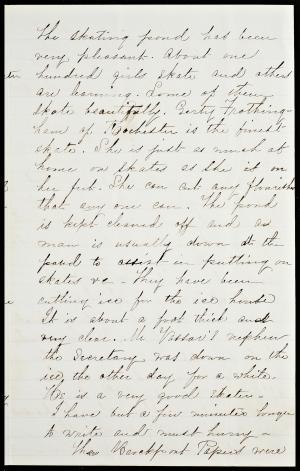 The skating pond has been
very pleasant. About one
hundred girls skate and others
are learning. Some of them
skate beautifully. Gerty Frothing-
ham of Rochester is the finest
skate. She is just as much at
home on skates as she is on
her feet. She can cut any flourish
that any one can. The pond
is kept cleaned off and a
man is usually down at the
pond to assist in putting on
skates &c - They have been
cutting ice for the ice house
It is about a foot thick and
very clear. Mr Vassar's nephew
the Secretary was down on the
ice, the other day for a while.
He is a very good skater -
I have but a few minutes longer
to write and must hurry -
The Papers were